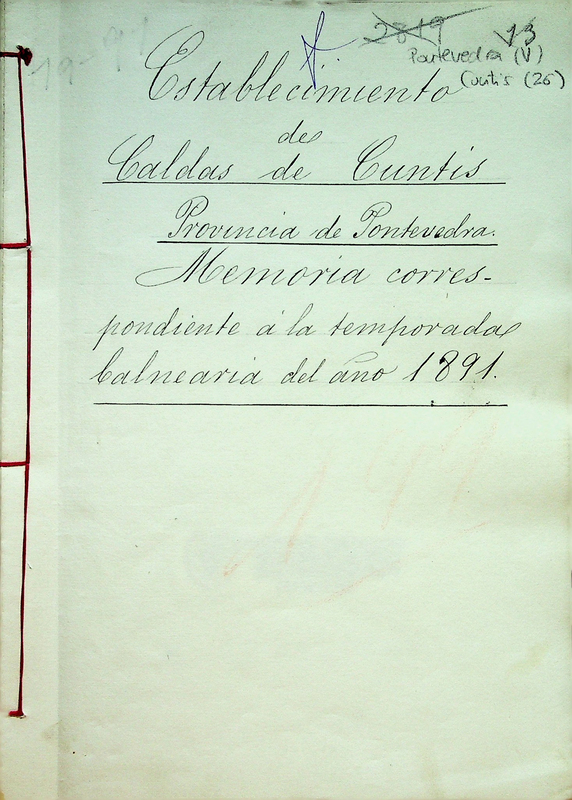 2819 13
Pontevedra (V)
Cuntis (26)
19-91
Establecimiento
de
Caldas de Cuntis
Provincia de Pontevedra.
Memoria corres-
pondiente á la temporada
balnearia del año 1891.